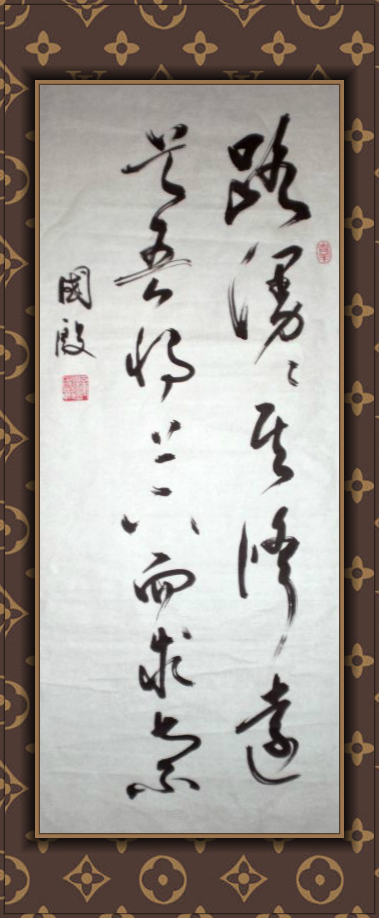 路漫々其修遠
兮吾将上下而求索
國殷